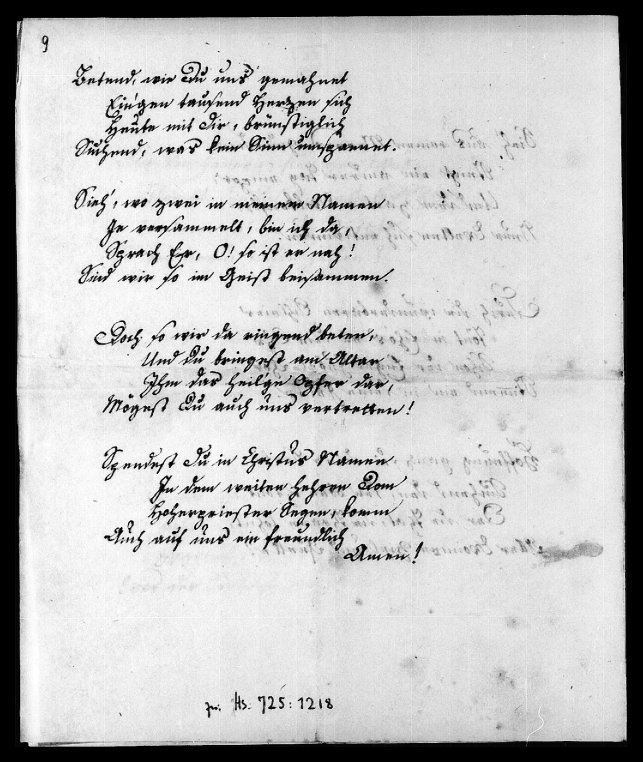 9
Betend, wie Du uns gemahnet
Ein'gen tausend Hertzen sich
Heute mit Dir, brünstiglich
Suchend, was kein Sinn umspannet.
Sieh', wo zwei in meinem Namen
Je versammelt, bin ich da,
Sprach Er, O! so ist er nah!
Sind wir so im Geist beisammen.
Doch so wir da ringend beten,
Und Du bringest am Altar
Ihm das heil'ge Opfer dar,
Mögest Du auch uns vertretten!
Spendest Du in Christus Namen
In dem weiten hehren Dom
Hoherpriester Segen, komm
Auch auf uns ein freundlich
Amen!
zu. Hs. 725:1218